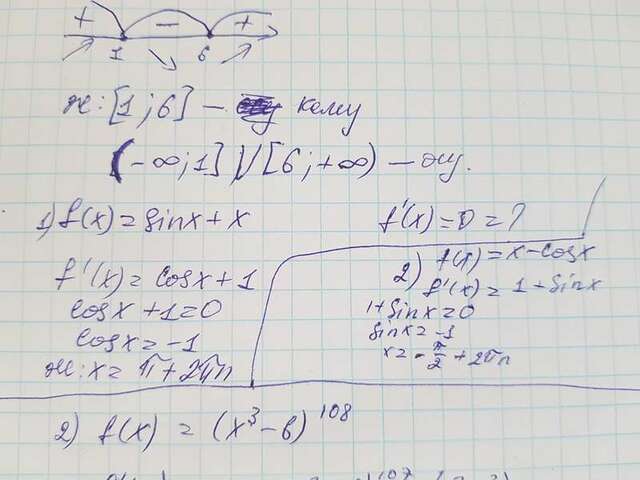 + − +
1 6
ж: [1; 6] — кему
(-∞; 1] V [6; +∞) — өсу.
1) f(x) = sinx + x
f'(x) = 0 = ?
f'(x) = cosx + 1
cosx + 1 = 0
cosx = -1
ж: x = π + 2πn
2) f(x) = x - cosx
f'(x) = 1 + sinx
1 + sinx = 0
sinx = -1
x = -π/2 + 2πn
2) f(x) = (x³ - 6)¹⁰⁸